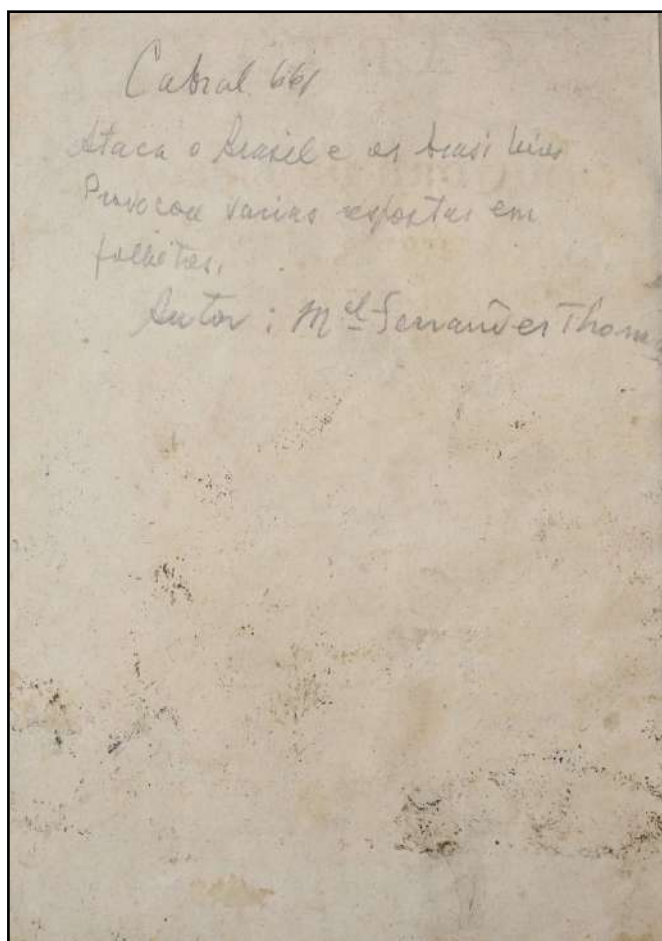 Cabral 661
Ataca o Brasil e os brasileiros
Provocou varias respostas em
folhetos.
Autor: Mel Fernandes Thomaz